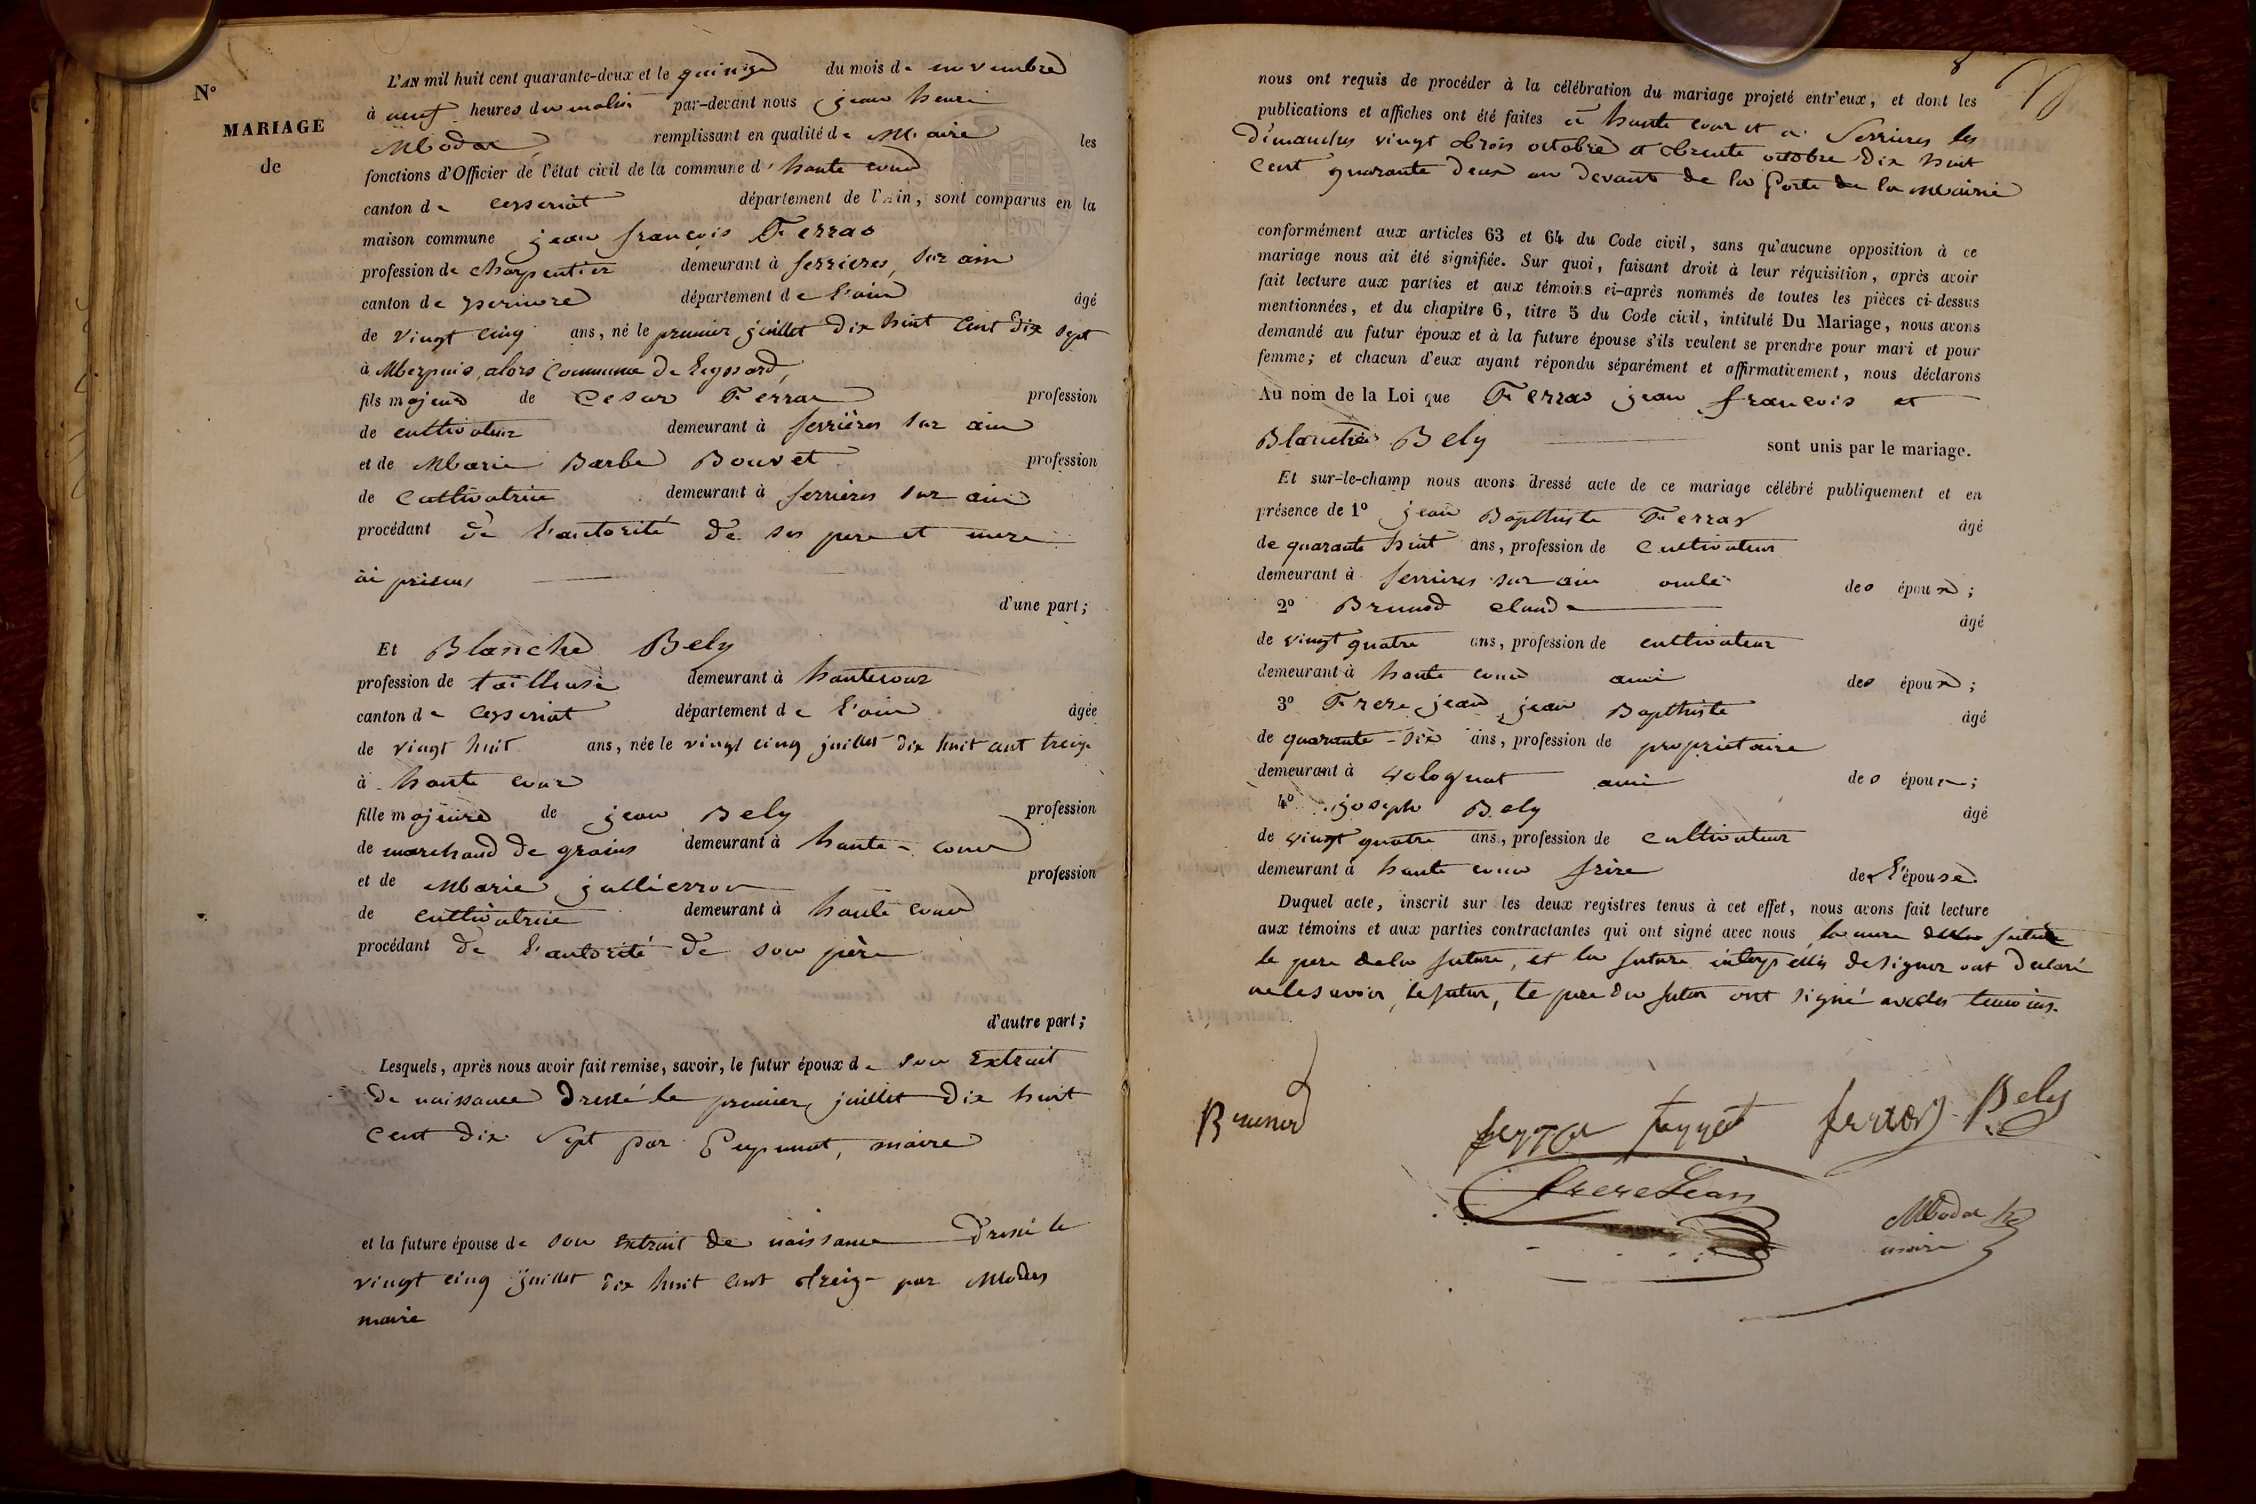 N°
MARIAGE
de
L'AN mil huit cent quarante-deux et le quinze du mois de novembre
à neuf heures du matin par-devant nous jean henri
Modas remplissant en qualité de Maire les
fonctions d'Officier de l'état civil de la commune d' haute cour
canton de ceyseriat département de l'Ain, sont comparus en la
maison commune jean françois Ferrao
profession de charpentier demeurant à serrieres sur ain
canton de département de l'ain âgé
de vingt cinq ans, né le premier juillet dix huit cent dix sept
à Merpuis, alors commune de Leyssard,
fils majeur de Cesar Ferrar profession
de cultivateur demeurant à serrières sur ain
et de Marie Barbe Bouvet profession
de cultivatrice demeurant à serrières sur ain
procédant de l'autorité de ses pere et mere
ici présens
d'une part;
Et Blanche Bely
profession de tailleuse demeurant à hautecour
canton de ceyseriat département de l'ain âgée
de vingt huit ans, née le vingt cinq juillet dix huit cent treize
à haute cour
fille majeure de jean Bely profession
de marchand de grains demeurant à haute-cour
et de Marie jullierron profession
de cultivatrice demeurant à haute cour
procédant de l'autorité de son père
d'autre part;
Lesquels, après nous avoir fait remise, savoir, le futur époux de son Extrait
de naissance dressé le premier juillet dix huit
cent dix sept par maire
et la future épouse de son extrait de naissance dressé le
vingt cinq juillet dix huit cent treize par Modas
maire
8
nous ont requis de procéder à la célébration du mariage projeté entr'eux, et dont les
publications et affiches ont été faites à haute cour et a Serrieres les
dimanches vingt trois octobre et trente octobre dix huit
cent quarante deux au devant de la Porte de la Mairie
conformément aux articles 63 et 64 du Code civil, sans qu'aucune opposition à ce
mariage nous ait été signifiée. Sur quoi, faisant droit à leur réquisition, après avoir
fait lecture aux parties et aux témoins ci-après nommés de toutes les pièces ci-dessus
mentionnées, et du chapitre 6, titre 5 du Code civil, intitulé Du Mariage, nous avons
demandé au futur époux et à la future épouse s'ils veulent se prendre pour mari et pour
femme; et chacun d'eux ayant répondu séparément et affirmativement, nous déclarons
Au nom de la Loi que Ferrao jean françois et
Blanche Bely sont unis par le mariage.
Et sur-le-champ nous avons dressé acte de ce mariage célébré publiquement et en
présence de 1° jean Bapthiste Ferrar âgé
de quarante huit ans, profession de cultivateur
demeurant à serrières sur ain oncle des époux;
2° Brunod claude âgé
de vingt quatre ans, profession de cultivateur
demeurant à haute cour ami des époux;
3° Frere jean, jean Bapthiste âgé
de quarante-six ans, profession de propriétaire
demeurant à volognat ami des époux;
4° joseph Bely âgé
de vingt quatre ans, profession de cultivateur
demeurant à haute cour frère de l'épouse
Duquel acte, inscrit sur les deux registres tenus à cet effet, nous avons fait lecture
aux témoins et aux parties contractantes qui ont signé avec nous la mere
le pere de la future, et la future interpellés de signer ont declaré
ne le savoir, le futur, le pere du futur ont signé avec les temoins.
Brunod Bely
frereJean
Modas
maire